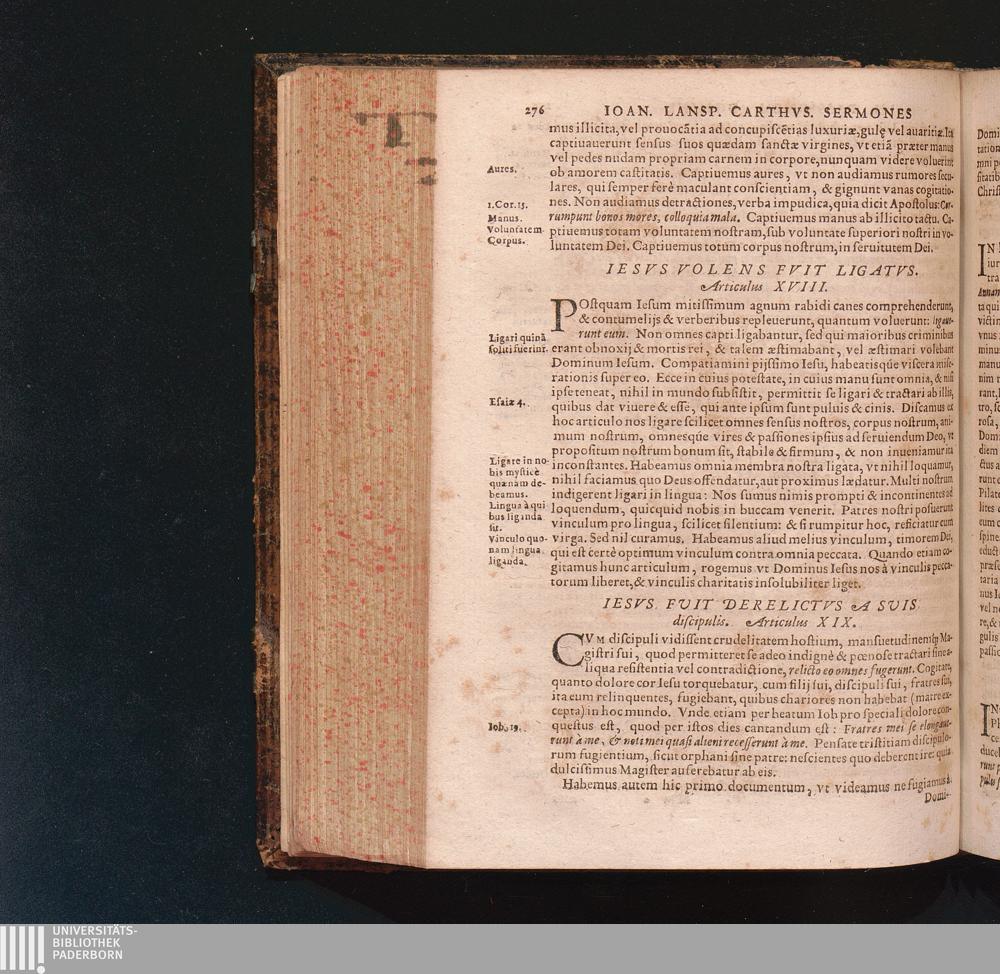 276 IOAN. LANSP. CARTHVS. SERMONES
mus illicita, vel prouocãtia ad concupiscẽtias luxuriæ, gulę vel auaritiæ. Ita
captiuauerunt sensus suos quædam sanctæ virgines, vt etiã præter manus
vel pedes nudam propriam carnem in corpore, nunquam videre voluerint
Aures.
ob amorem castitatis. Captiuemus aures, vt non audiamus rumores secu-
lares, qui semper ferè maculant conscientiam, & gignunt vanas cogitatio-
1.Cor.15.
nes. Non audiamus detractiones, verba impudica, quia dicit Apostolus: Cor-
Manus.
rumpunt bonos mores, colloquia mala. Captiuemus manus ab illicito tactu. Ca-
Voluntatem
ptiuemus totam voluntatem nostram, sub voluntate superiori nostri in vo-
Corpus.
luntatem Dei. Captiuemus totum corpus nostrum, in seruitutem Dei.
IESVS VOLENS FVIT LIGATVS.
Articulus XVIII.
POstquam Iesum mitissimum agnum rabidi canes comprehenderunt,
& contumelijs & verberibus repleuerunt, quantum voluerunt: ligaue-
runt eum. Non omnes capti ligabantur, sed qui maioribus criminibus
Ligari quinã
soliti fuerint.
erant obnoxij & mortis rei, & talem æstimabant, vel æstimari volebant
Dominum Iesum. Compatiamini pijssimo Iesu, habeatisque viscera mise-
rationis super eo. Ecce in cuius potestate, in cuius manu sunt omnia, & nisi
ipse teneat, nihil in mundo subsistit, permittit se ligari & tractari ab illis,
Esaiæ 4.
quibus dat viuere & esse, qui ante ipsum sunt puluis & cinis. Discamus ex
hoc articulo nos ligare scilicet omnes sensus nostros, corpus nostrum, ani-
mum nostrum, omnesqúe vires & passiones ipsius ad seruiendum Deo, vt
propositum nostrum bonum sit, stabile & firmum, & non inueniamur ita
Ligare in no-
bis mysticè
quænam de-
beamus.
inconstantes. Habeamus omnia membra nostra ligata, vt nihil loquamur,
nihil faciamus quo Deus offendatur, aut proximus lædatur. Multi nostrum
indigerent ligari in lingua: Nos sumus nimis prompti & incontinentes ad
Lingua à qui
bus liganda
sit.
loquendum, quicquid nobis in buccam venerit. Patres nostri posuerunt
vinculum pro lingua, scilicet silentium: & si rumpitur hoc, reficiatur cum
Vinculo quo-
nam lingua
liganda.
virga. Sed nil curamus. Habeamus aliud melius vinculum, timorem Dei,
qui est certè optimum vinculum contra omnia peccata. Quando etiam co-
gitamus hunc articulum, rogemus vt Dominus Iesus nos à vinculis pecca-
torum liberet, & vinculis charitatis insolubiliter liget.
IESVS FVIT DERELICTVS A SVIS
discipulis. Articulus XIX.
CVM discipuli vidissent crudelitatem hostium, mansuetudinemq́; Ma-
gistri sui, quod permitteret se adeo indignè & pœnose tractari sine a-
liqua resistentia vel contradictione, relicto eo omnes fugerunt. Cogitate,
quanto dolore cor Iesu torquebatur, cum filij sui, discipuli sui, fratres sui,
ita eum relinquentes, fugiebant, quibus chariores non habebat (matre ex-
cepta) in hoc mundo. Vnde etiam per beatum Iob pro speciali dolore con-
Iob. 19.
questus est, quod per istos dies cantandum est: Fratres mei se elongaue-
runt à me, & noti mei quasi alieni recesserunt à me. Pensate tristitiam discipulo-
rum fugientium, sicut orphani sine patre: nescientes quo deberent ire: quia
dulcissimus Magister auferebatur ab eis.
Habemus autem hic primo documentum, vt videamus ne fugiamus à
Domi-
UNIVERSITÄTS-
BIBLIOTHEK
PADERBORN